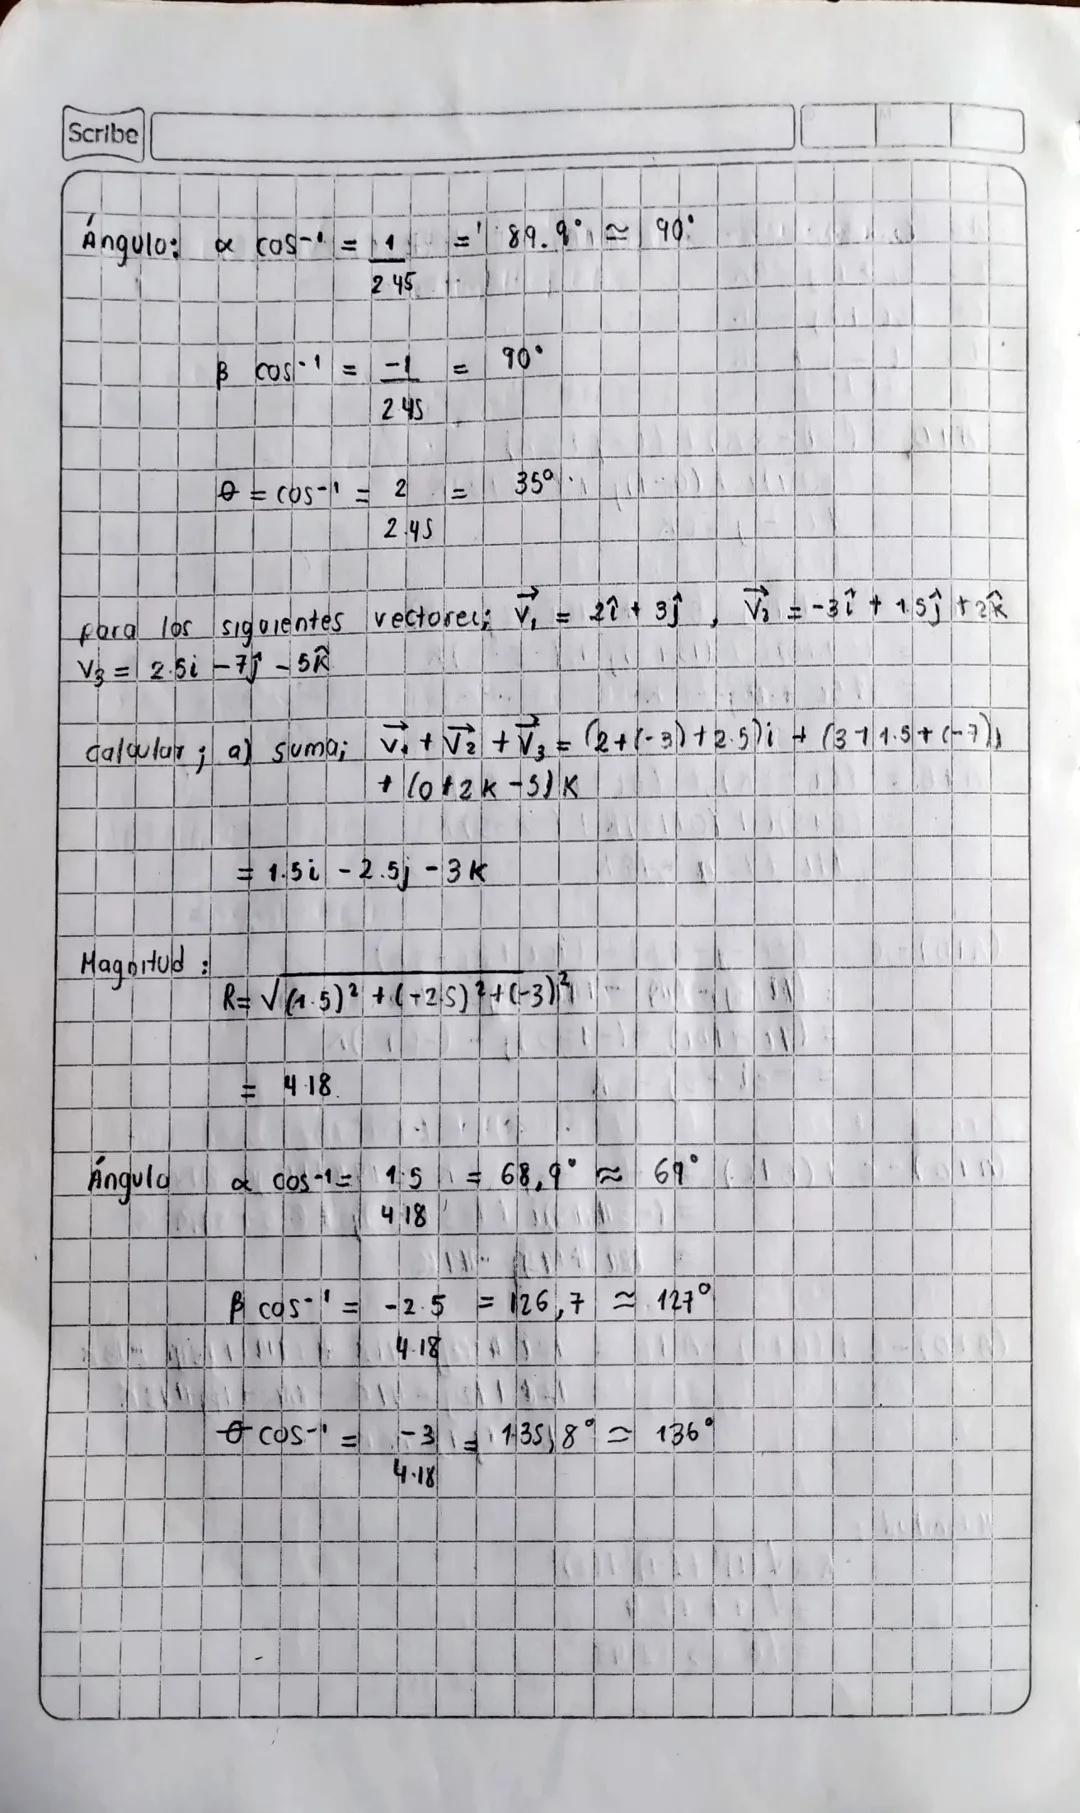 Scribe
Ángulo: α cos⁻¹ = 1 = 89.9° ≈ 90°
2.45
β cos⁻¹ = -1 = 90°
2.45
θ = cos⁻¹ = 2 = 35°
2.45
para los siguientes vectores; V₁ = 2î + 3ĵ , V₂ = -3î + 1.5ĵ + 2k̂
V₃ = 2.5i - 7ĵ - 5k̂
calcular; a) suma; V₁ + V₂ + V₃ = (2+(-3)+2.5)i + (3+1.5+(-7))j
+ (0+2k-5)k
= 1.5i - 2.5j - 3k
Magnitud:
R= √(1.5)² + (-2.5)² + (-3)²
= 4.18.
Ángulo α cos⁻¹ = 1.5 = 68,9° ≈ 69°
4.18
β cos⁻¹ = -2.5 = 126,7 ≈ 127°
4.18
θ cos⁻¹ = -3 = 135,8° ≈ 136°
4.18